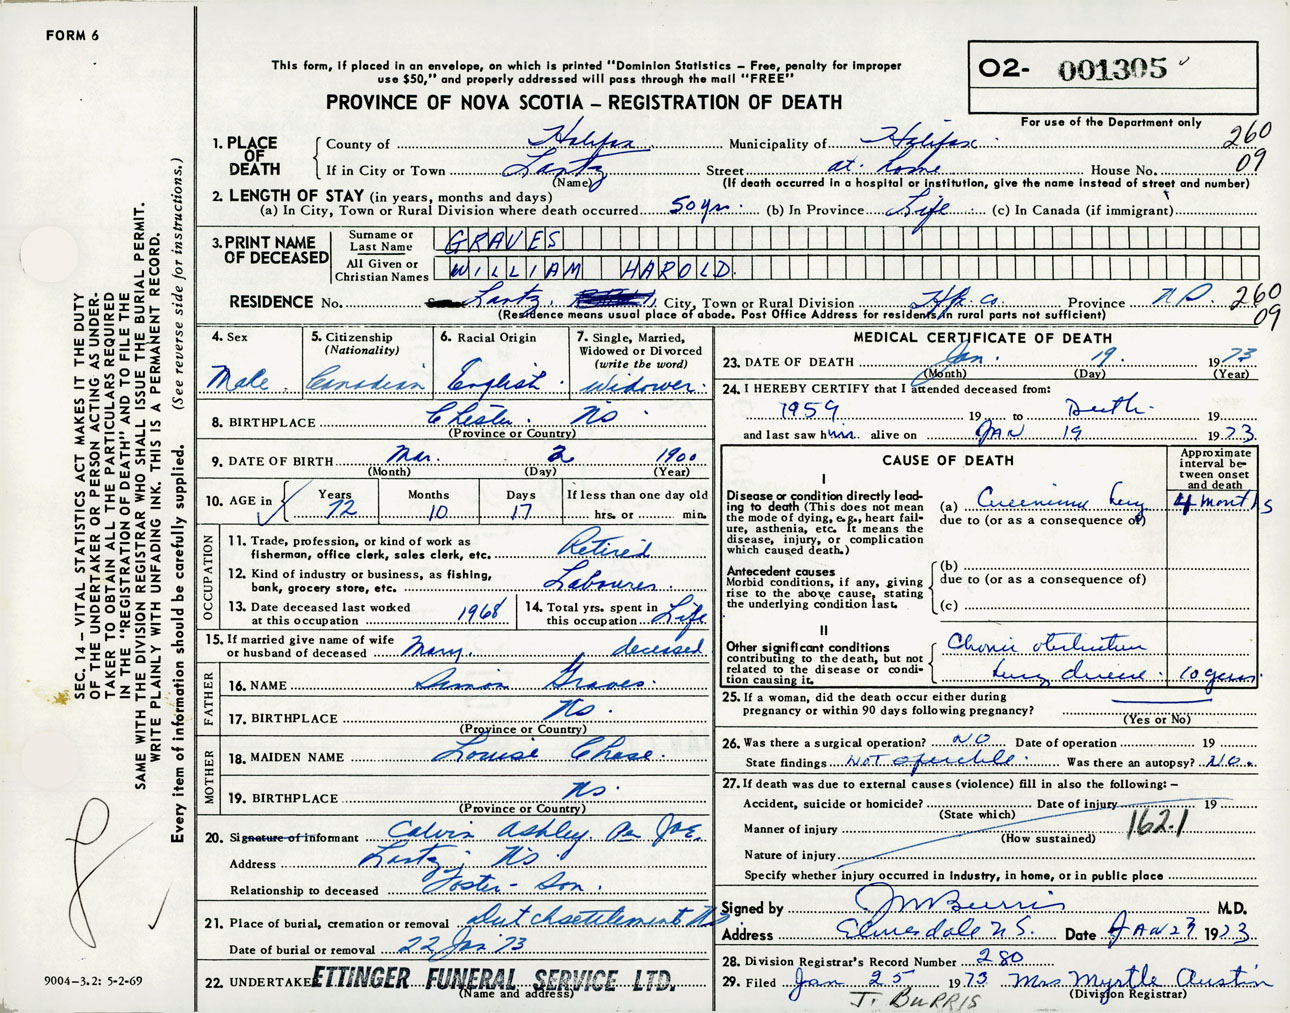 FORM 6
This form, if placed in an envelope, on which is printed "Dominion Statistics – Free, penalty for improper
use $50," and properly addressed will pass through the mail "FREE"
PROVINCE OF NOVA SCOTIA – REGISTRATION OF DEATH
O2- 001305
For use of the Department only
260
09
1. PLACE OF DEATH
County of Halifax Municipality of Halifax
If in City or Town Lantz Street at home House No.
(Name) (If death occurred in a hospital or institution, give the name instead of street and number)
2. LENGTH OF STAY (in years, months and days)
(a) In City, Town or Rural Division where death occurred 50 yrs. (b) In Province Life (c) In Canada (if immigrant)
3. PRINT NAME OF DECEASED
Surname or Last Name GRAVES
All Given or Christian Names WILLIAM HAROLD
RESIDENCE No. Lantz, City, Town or Rural Division Hfx Co. Province NS. 260
09
(Residence means usual place of abode. Post Office Address for residents in rural parts not sufficient)
4. Sex Male
5. Citizenship (Nationality) Canadian
6. Racial Origin English
7. Single, Married, Widowed or Divorced (write the word) Widower
8. BIRTHPLACE Chester NS.
(Province or Country)
9. DATE OF BIRTH Mar. 2 1900
(Month) (Day) (Year)
10. AGE in Years 72 Months 10 Days 17 If less than one day old
hrs. or min.
OCCUPATION
11. Trade, profession, or kind of work as
fisherman, office clerk, sales clerk, etc. Retired
12. Kind of industry or business, as fishing,
bank, grocery store, etc. Labourer.
13. Date deceased last worked
at this occupation 1968
14. Total yrs. spent in
this occupation Life
15. If married give name of wife
or husband of deceased Mary. deceased
FATHER
16. NAME Simon Graves.
17. BIRTHPLACE NS.
(Province or Country)
MOTHER
18. MAIDEN NAME Louise Chase.
19. BIRTHPLACE NS.
(Province or Country)
20. Signature of informant Calvin Ashley Per JOE.
Address Lantz, NS.
Relationship to deceased Foster-Son.
21. Place of burial, cremation or removal Dutch settlement NS
Date of burial or removal 22 Jan 73
22. UNDERTAKER ETTINGER FUNERAL SERVICE LTD.
(Name and address)
MEDICAL CERTIFICATE OF DEATH
23. DATE OF DEATH Jan. 19. 1973
(Month) (Day) (Year)
24. I HEREBY CERTIFY that I attended deceased from:
1959 19 to Death. 19
and last saw him alive on JAN 19 1973
CAUSE OF DEATH
Approximate interval between onset and death
I
Disease or condition directly leading to death (This does not
mean the mode of dying, e.g., heart failure, asthenia, etc. It means the
disease, injury, or complication
which caused death.)
(a) lung 4 months
due to (or as a consequence of)
Antecedent causes
Morbid conditions, if any, giving
rise to the above cause, stating
the underlying condition last.
(b)
due to (or as a consequence of)
(c)
II
Other significant conditions
contributing to the death, but not
related to the disease or condition causing it.
Chronic obstructive
lung disease. 10 years.
25. If a woman, did the death occur either during
pregnancy or within 90 days following pregnancy?
(Yes or No)
26. Was there a surgical operation? NO Date of operation 19
State findings NOT operable. Was there an autopsy? NO.
27. If death was due to external causes (violence) fill in also the following: –
Accident, suicide or homicide? Date of injury 19
(State which)
Manner of injury 162.1
(How sustained)
Nature of injury
Specify whether injury occurred in industry, in home, or in public place
Signed by JM Burris M.D.
Address Elmsdale N.S. Date JAN 23 1973
28. Division Registrar's Record Number 280
29. Filed Jan 25 1973 Mrs Myrtle Austin
(Division Registrar)
J. BURRIS
SEC. 14 – VITAL STATISTICS ACT MAKES IT THE DUTY
OF THE UNDERTAKER OR PERSON ACTING AS UNDERTAKER TO OBTAIN ALL THE PARTICULARS REQUIRED
IN THE "REGISTRATION OF DEATH" AND TO FILE THE
SAME WITH THE DIVISION REGISTRAR WHO SHALL ISSUE THE BURIAL PERMIT.
WRITE PLAINLY WITH UNFADING INK. THIS IS A PERMANENT RECORD.
Every item of information should be carefully supplied. (See reverse side for instructions.)
9004-3.2: 5-2-69